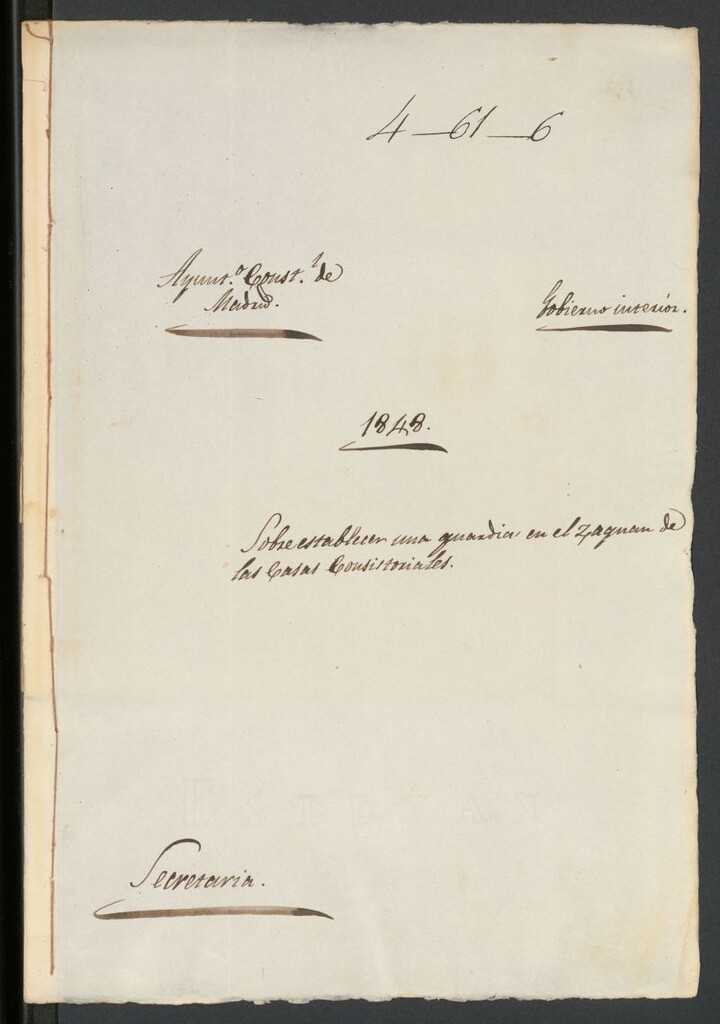 4—61—6
Ayunt.o Const.l de
Madrid.
Gobierno interior.
1848.
Sobre establecer una guardia en el Zaguan de
las Casas Consistoriales.
Secretaria.